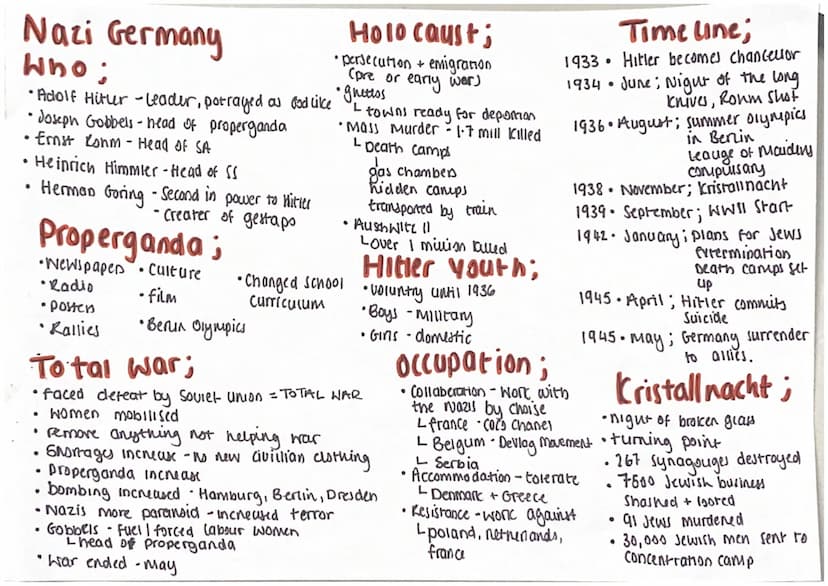 Nazi Germany
Who;
• Adolf Hitler - Leader, potrayed as God like
• Joseph Gobbels - head of properganda
• Ernst Rohm - Head of SA
• Heinrich Himmler - Head of SS
• Herman Goring - Second in power to Hitler
- Creater of gestapo
Properganda;
• Newspapers
• Radio
• posters
• Rallies
• Culture
• film
• Berlin Olympics
• Changed School
curriculum
Total war;
• faced defeat by Soviet Union = TOTAL WAR
• women mobilised
• remove anything not helping war
• Shortages increase - no new civilian clothing
• properganda increase
• bombing increased - Hamburg, Berlin, Dresden
• Nazis more paranoid - increased terror
• Gobbels - fuel/forced labour women
└ head of properganda
• War ended - May
Holocaust;
• persecution + emigration
(pre or early war)
• ghettos
└ towns ready for deportation
• Mass Murder - 1.7 mill killed
└ Death camps
gas chambers
hidden camps
transported by train
• Aushwitz II
└ Over 1 million killed
Hitler youth;
• voluntry until 1936
• Boys - military
• Girls - domestic
Occupation;
• Collaberation - work with
the nazis by choise
└ france - Coco Chanel
└ Belgum - Devlag movement
└ Serbia
• Accommodation - tolerate
└ Denmark + Greece
• Resistance - work against
└ poland, netherlands,
france
Timeline;
1933 • Hitler becomes chancellor
1934 • June; Night of the long
knives, Rohm Shot
1936 • August; summer olympics
in Berlin
League of Maidens
compulsary
1938 • November; Kristallnacht
1939 • September; WWII Start
1942 • January; plans for Jews
extermination
Death camps set
up
1945 • April; Hitler commits
suicide
1945 • May; Germany surrender
to allies.
Kristallnacht;
• night of broken glass
• turning point
• 267 synagouges destroyed
• 7500 Jewish business
Shashed + looted
• 91 Jews murdered
• 30,000 Jewish men sent to
concentration camp